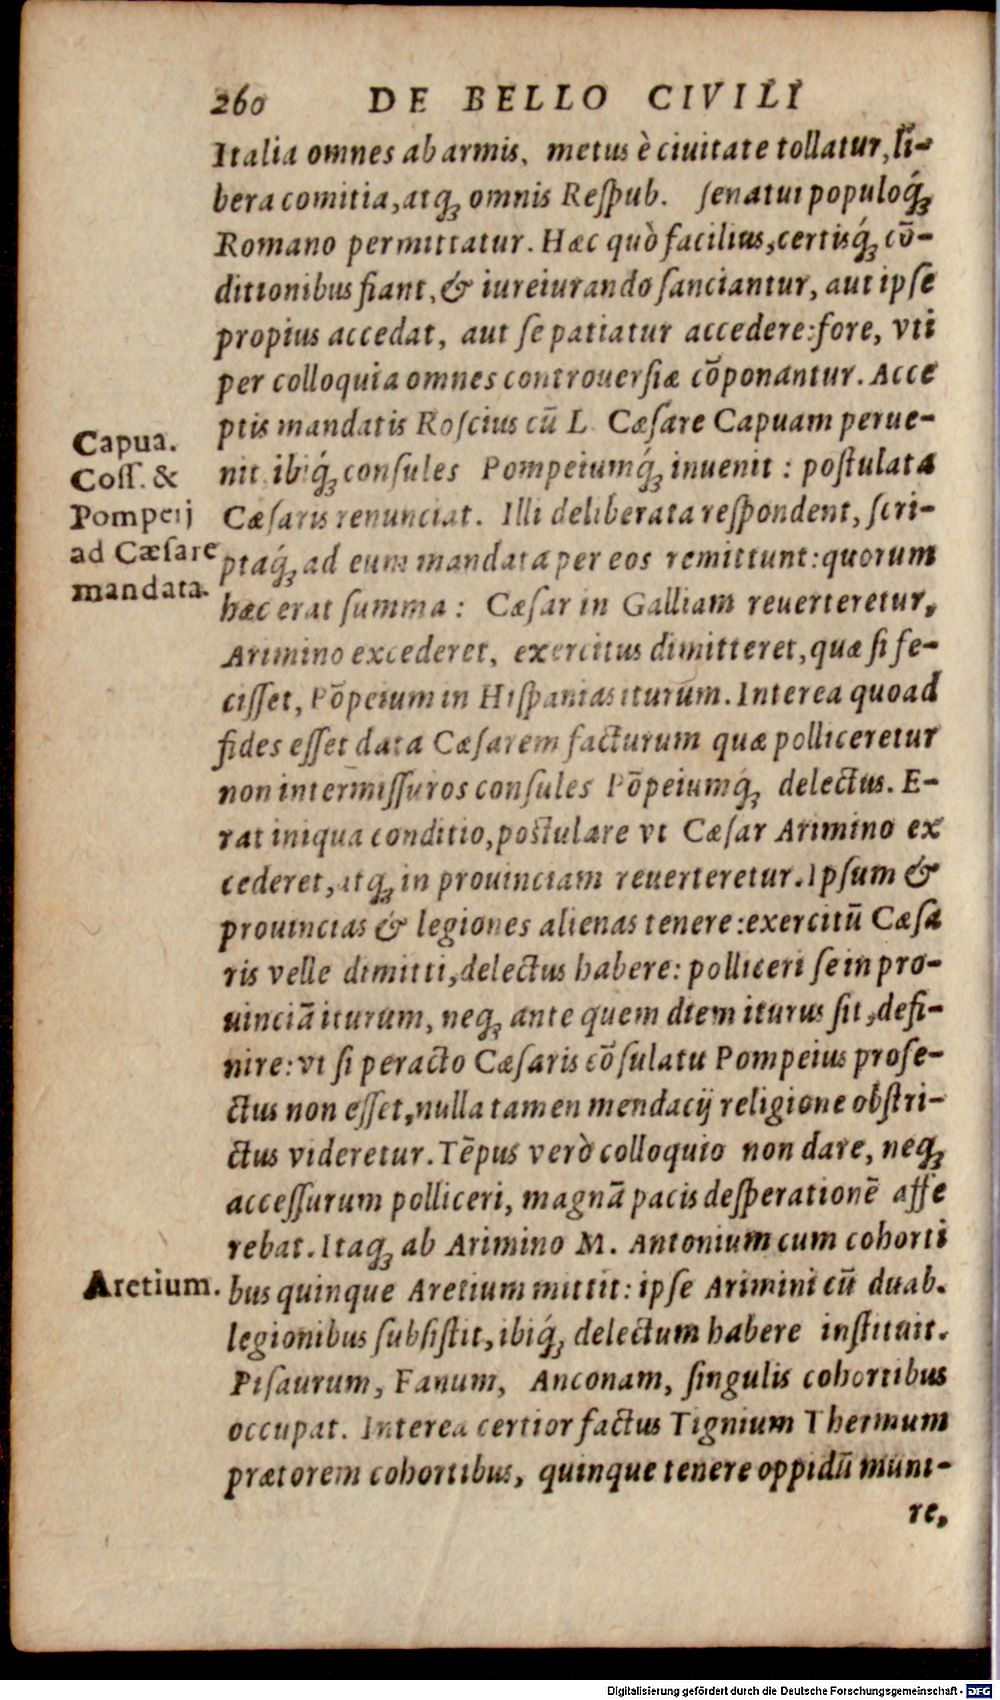 260 DE BELLO CIVILI
Italia omnes ab armis, metus è ciuitate tollatur, li-
bera comitia, atq; omnis Respub. senatui populoq́;
Romano permittatur. Hæc quò facilius, certisq́; cō-
ditionibus fiant, & iureiurando sanciantur, aut ipse
propius accedat, aut se patiatur accedere: fore, vti
per colloquia omnes controuersiæ cōponantur. Acce
ptis mandatis Roscius cū L. Cæsare Capuam perue-
nit, ibiq́; consules Pompeiumq́; inuenit: postulata
Cæsaris renunciat. Illi deliberata respondent, scri-
ptaq́; ad eum mandata per eos remittunt: quorum
hæc erat summa: Cæsar in Galliam reuerteretur,
Arimino excederet, exercitus dimitteret, quæ si fe-
cisset, Pōpeium in Hispanias iturum. Interea quoad
fides esset data Cæsarem facturum quæ polliceretur
non intermissuros consules Pōpeiumq́; delectus. E-
rat iniqua conditio, postulare vt Cæsar Arimino ex
cederet, atq; in prouinciam reuerteretur. Ipsum &
prouincias & legiones alienas tenere: exercitū Cæsa
ris velle dimitti, delectus habere: polliceri se in pro-
uinciā iturum, neq; ante quem diem iturus sit, defi-
nire: vt si peracto Cæsaris cōsulatu Pompeius profe-
ctus non esset, nulla tamen mendacij religione obstri-
ctus videretur. Tēpus verò colloquio non dare, neq;
accessurum polliceri, magnā pacis desperationē affe
rebat. Itaq; ab Arimino M. Antonium cum cohorti
bus quinque Aretium mittit: ipse Arimini cū duab.
legionibus subsistit, ibiq́; delectum habere instituit.
Pisaurum, Fanum, Anconam, singulis cohortibus
occupat. Interea certior factus Tignium Thermum
prætorem cohortibus, quinque tenere oppidū muni-
re,
Capua.
Coss. &
Pompeij
ad Cæsare
mandata.
Aretium.
Digitalisierung gefördert durch die Deutsche Forschungsgemeinschaft - DFG